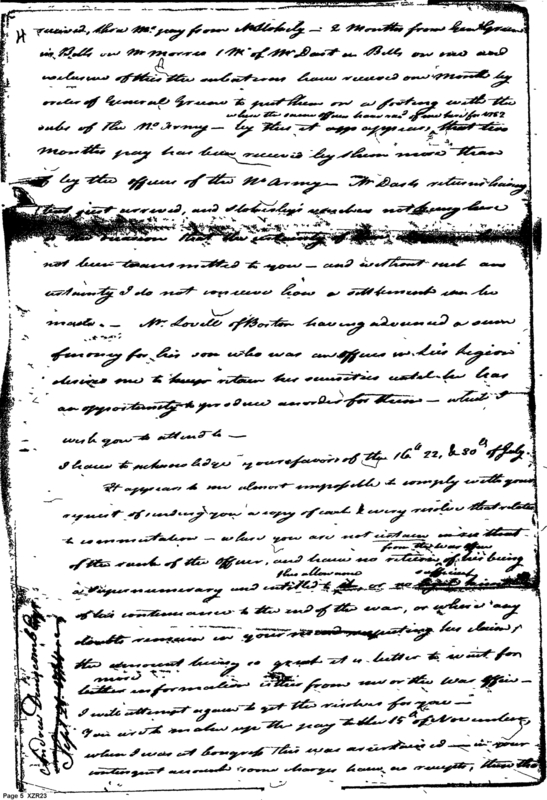 4
received, three Mos. pay from — 2 Months from Genl Green
in Bills on Mr Morris 1 Mo. of Mr Dart in Bills on and
inclusive of this the subalterns have received one Month by
order of General Greene to put them on a footing with the
where the same officers have recd of one here for 1782
subs of the No. Army — by this it appears, that two
months pay has been received by them more than
by the officers of the No. Army — Mr Darts returns being
but just arrived, and vouchers not being here
is the reason that the certainty of
not been transmitted to you — and without such an
certainty I do not conceive how a settlement can be
made. — Mr. Lovell of Boston having advanced a sum
of money for his son who was an officer in Lees Legion
desires me to retain his securities until he has
an opportunity to produce an order for them — which I
wish you to attend to —
I have to acknowledge your favors of the 16th 22, & 30th of July.
It appears to me almost impossible to comply with your
request of sending you a copy of each & every resolve that relates
to commutation — where you are not certain
from the War office
of the rank of the Officer, and have no returns of his being
this allowance sufficient
a Supernumerary and entitled to
of his continuance to the end of the war, or where any
doubts remain in your respecting his claim,
the amount being so great it is better to wait for
more
better information either from me or the War Office —
I will attempt again to get the resolves for you —
You are to make up the pay to the 15th of November
when I was at Congress this was ascertained — in your
contingent account some charges have no receipts, then the
Andrew Dunscomb Esqr
Sept 24
Page 5 XZR23